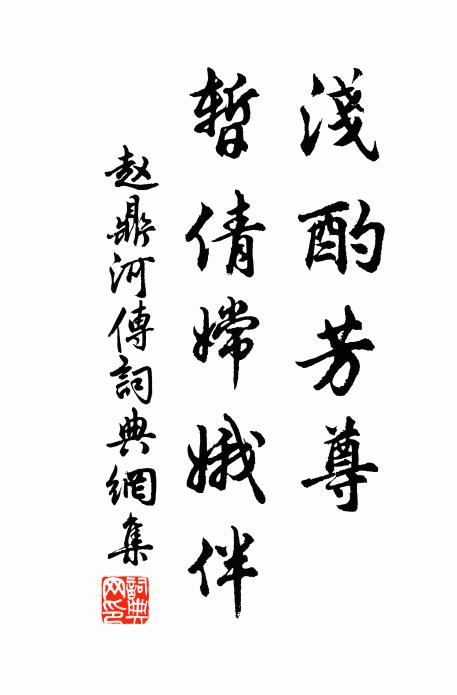 淺酌芳尊
暫倩嫦娥伴
赵鼎河傳詞典網集
詞典網